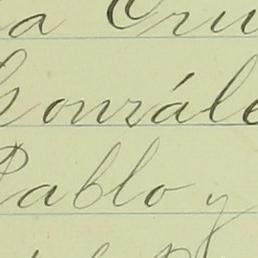 a Cru
Gonzále
Pablo y